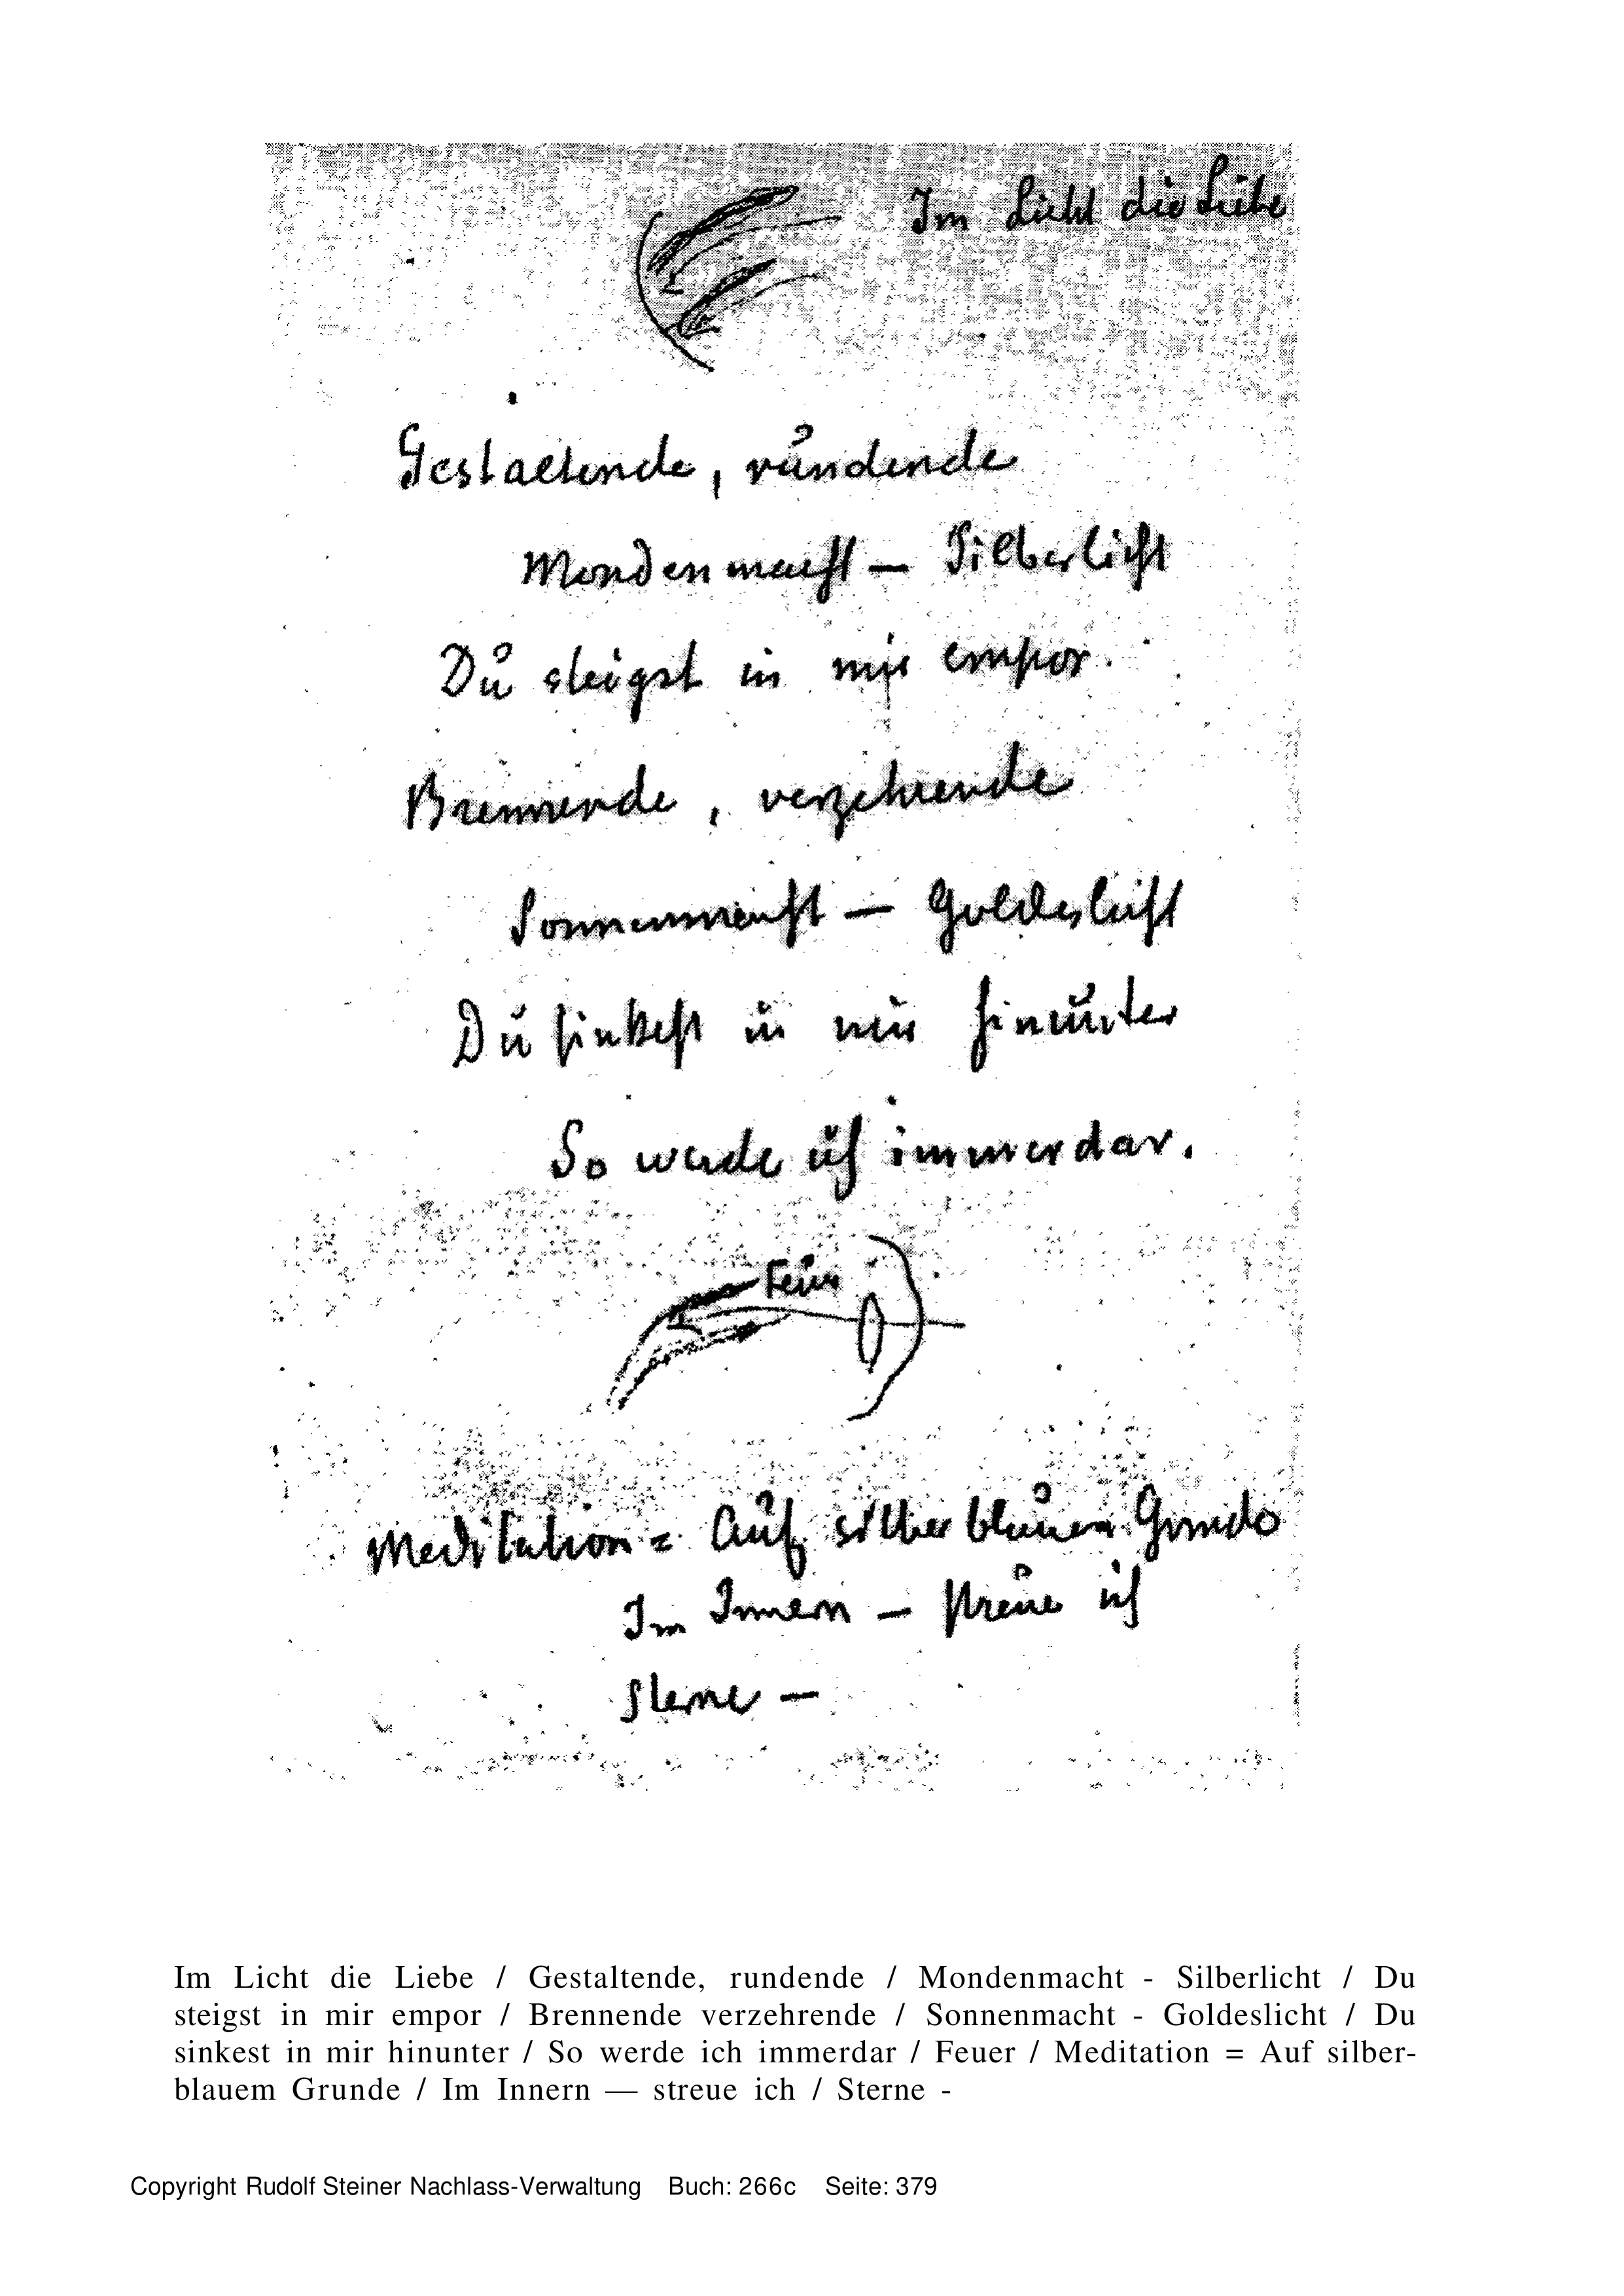 Im Licht die Liebe
Gestaltende, rundende
Mondenmacht — Silberlicht
Du steigst in mir empor.
Brennende, verzehrende
Sonnenmacht — Goldeslicht
Du sinkest in mir hinunter
So werde ich immerdar.
Feuer
Meditation = Auf silberblauem Grunde
Im Innern — streue ich
Sterne —
Im Licht die Liebe / Gestaltende, rundende / Mondenmacht - Silberlicht / Du
steigst in mir empor / Brennende verzehrende / Sonnenmacht - Goldeslicht / Du
sinkest in mir hinunter / So werde ich immerdar / Feuer / Meditation = Auf silber-
blauem Grunde / Im Innern — streue ich / Sterne -
Copyright Rudolf Steiner Nachlass-Verwaltung Buch: 266c Seite: 379